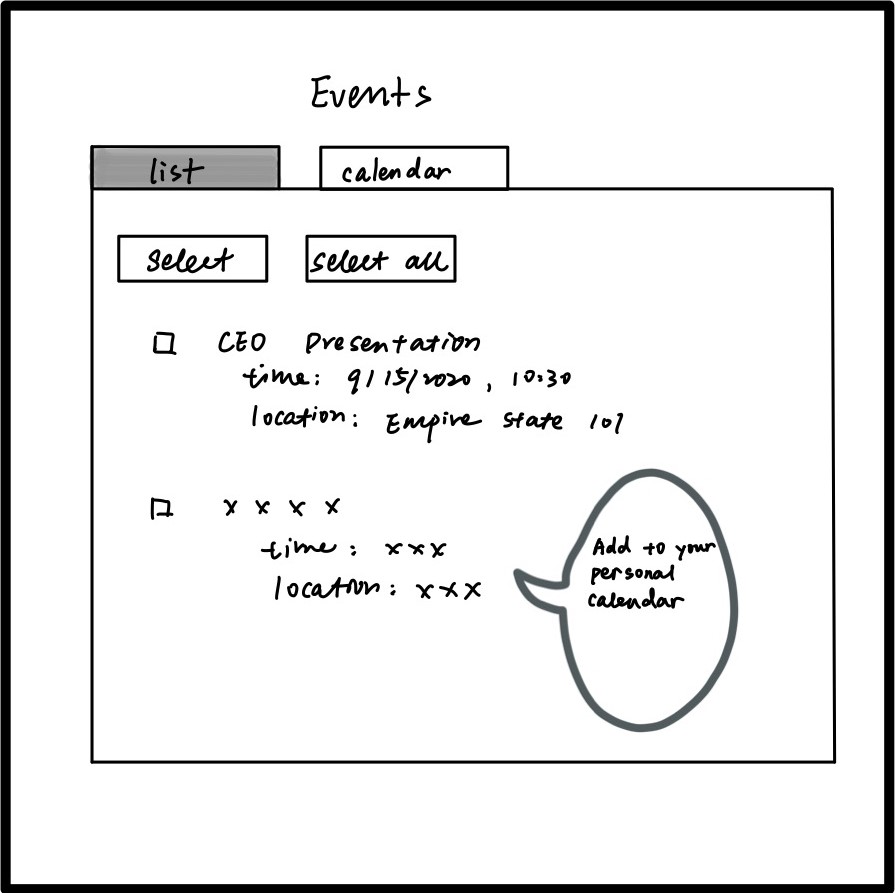 Events
list
calendar
Select
select all
CEO Presentation
time: 9/15/2020, 10:30
location: Empire State 101
x x x x
time: xxx
location: xxx
Add to your
personal
calendar